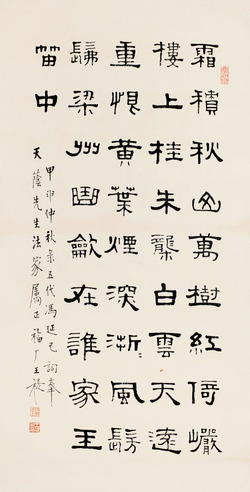 霜積秋山萬樹紅倚巖
樓上挂朱櫳白雲天遠
重〻恨黃葉煙深淅〻風髣
髴梁州曲龡在誰家玉
笛中
甲申仲秋彔五代馮延巳詞奉
天蔭先生法家屬正 福厂王禔